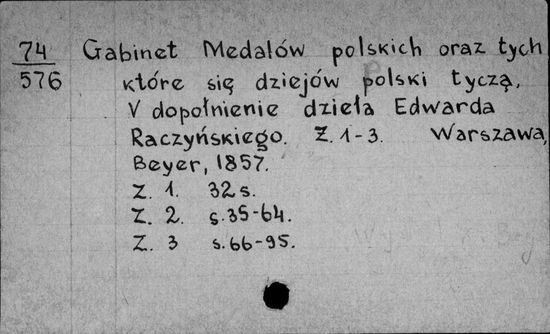 74
576
Gabinet Medalów polskich oraz tych
które się dziejów polski tyczą,
V dopołnienie dzieła Edwarda
Raczyńskiego. Z. 1-3. Warszawa,
Beyer, 1857.
Z. 1. 32 s.
Z. 2. s. 35-64.
Z. 3 s. 66-95.